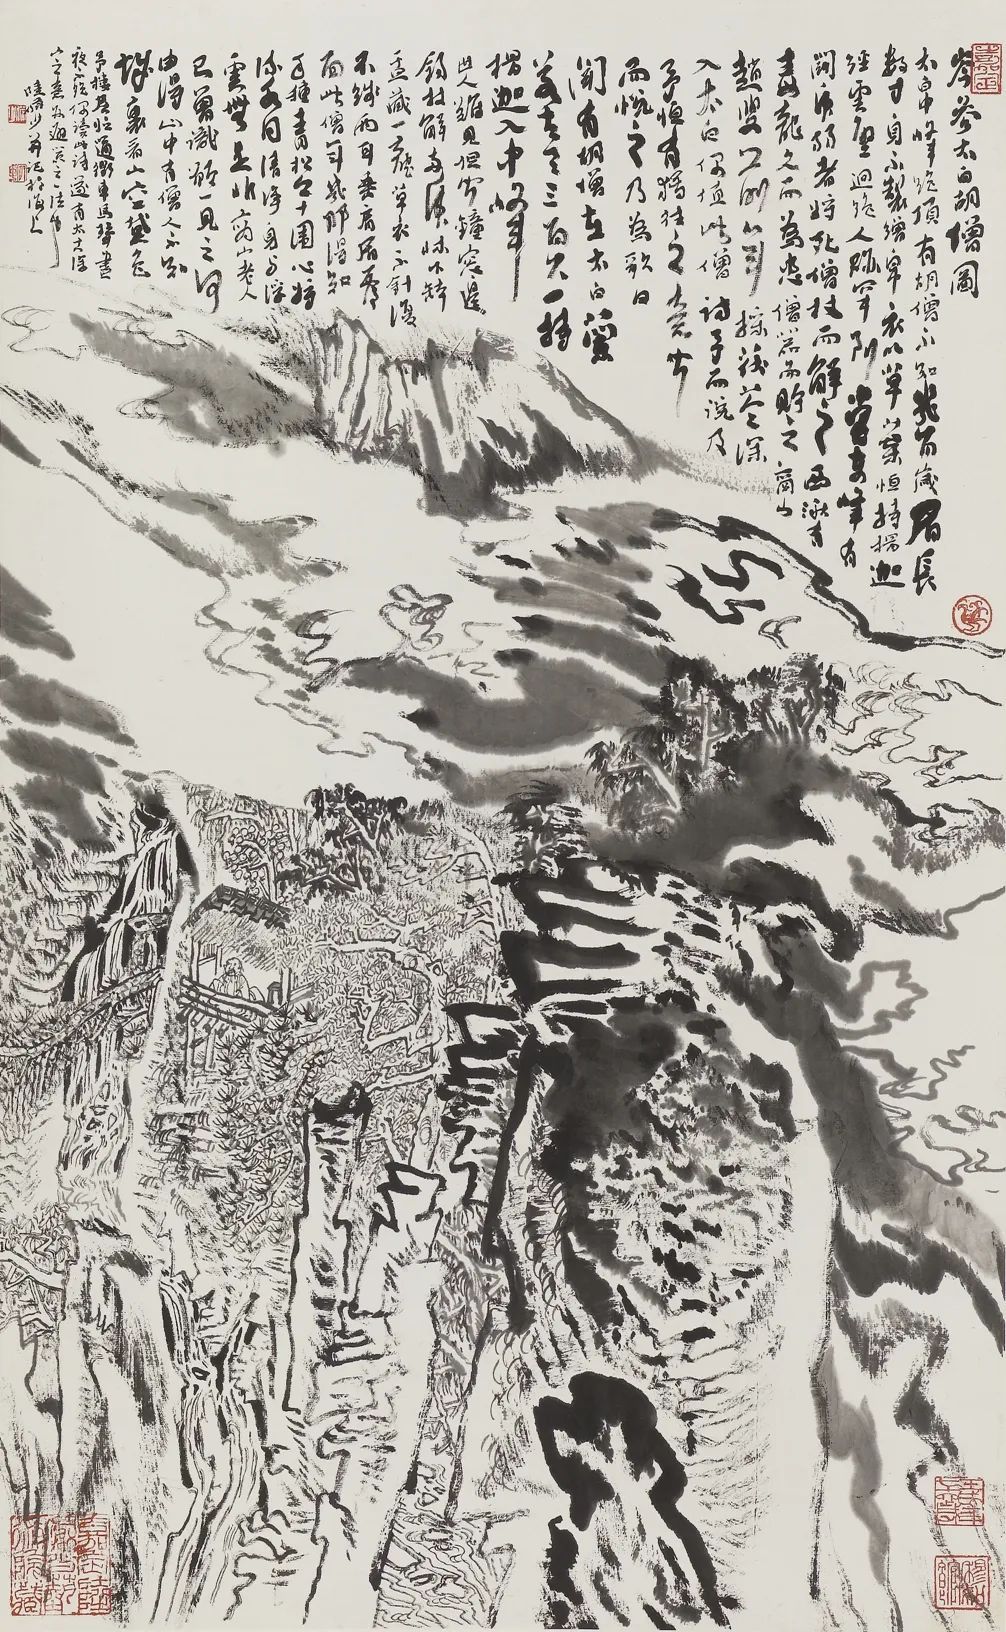 岑參太白胡僧圖
太白中峰絕頂有胡僧不知幾百歲眉長
數寸身不製繒帛衣以草葉恒持楞迦
經雲壁迥絕人跡罕到嘗東峰有
鬬虎弱者將死僧杖而解之西湫有
毒龍久而為患僧器而貯之商山
趙叟前年採茯苓深
入太白偶值此僧訪予而說及
予恒有獨往之意聞
而悅之乃為歌曰
聞有胡僧在太白蘭
若去天三百尺一持
楞迦入中峰
世人難見但聞鐘窗邊
錫杖解兩虎床下鉢
盂藏一龍草衣不針復
不線兩耳垂肩眉覆
面此僧年幾那得知
手種青松今十圍心將
流水同清淨身與浮
雲無是非商山老人
已曾識願一見之何
由得山中有僧人不知
城裏看山空黛色
予樓居臨通衢車馬聲晝
夜偶讀此詩遂有太古
陸儼少并記於滬上